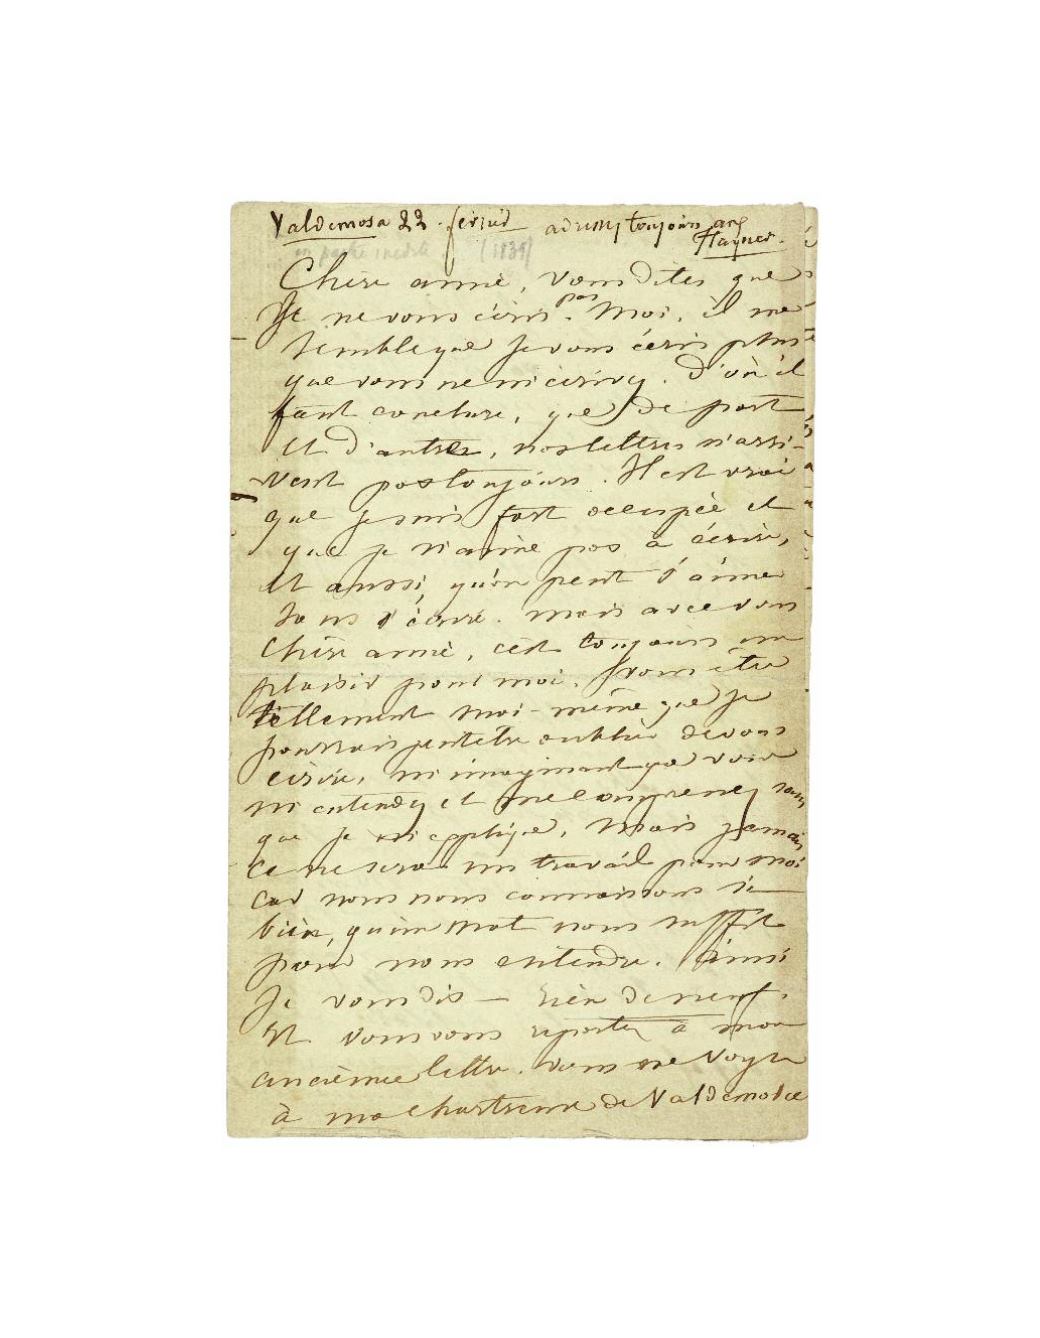 Valdemosa 22 février adressez toujours aux
Flayner.
en partie inédite. (1839)
Chère amie, vous dites que
Je ne vous écris pas. Moi, il me
semble que je vous écris plus
que vous ne m'écrivez. D'où il
faut conclure, que de part
et d'autre, nos lettres n'arri-
vent pas toujours. Il est vrai
que je suis fort occupée et
que je n'aime pas à écrire,
et aussi, qu'on peut s'aimer
sans s'écrire. Mais avec vous
Chère amie, c'est toujours un
plaisir pour moi. Vous êtes
tellement moi-même que je
pourrais peutêtre oublier de vous
écrire, m'imaginant que vous
m'entendez et me comprenez sans
que je m'explique, Mais jamais
ce ne sera un travail pour moi
car nous nous connaissons si
bien, qu'un mot nous suffit
pour nous entendre. Ainsi
Je vous dis — rien de neuf.
Et vous vous reportez à mon
ancienne lettre. vous me voyez
à ma chartreuse de Valdemosa